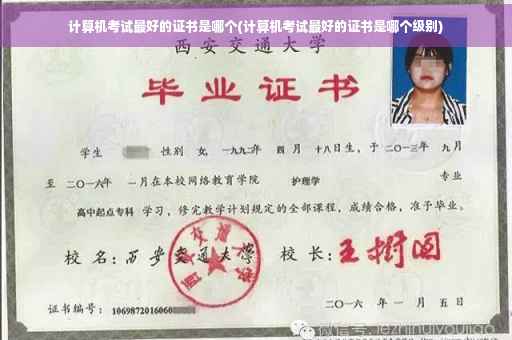 计算机考试最好的证书是哪个(计算机考试最好的证书是哪个级别)
西安交通大学
毕业证书
学生 性别 女, 一九九二年 四月 十八日生, 于二〇一三年 九月
至 二〇一六年 一月在本校网络教育学院 护理学 专业
高中起点专科 学习, 修完教学计划规定的全部课程, 成绩合格, 准予毕业。
校 名: 西安交通大学 校 长: 王树国
西安交通大学
证书编号: 1069872016060
二〇一六 年 一 月 五 日
微信号: jezhinuiyoujiao